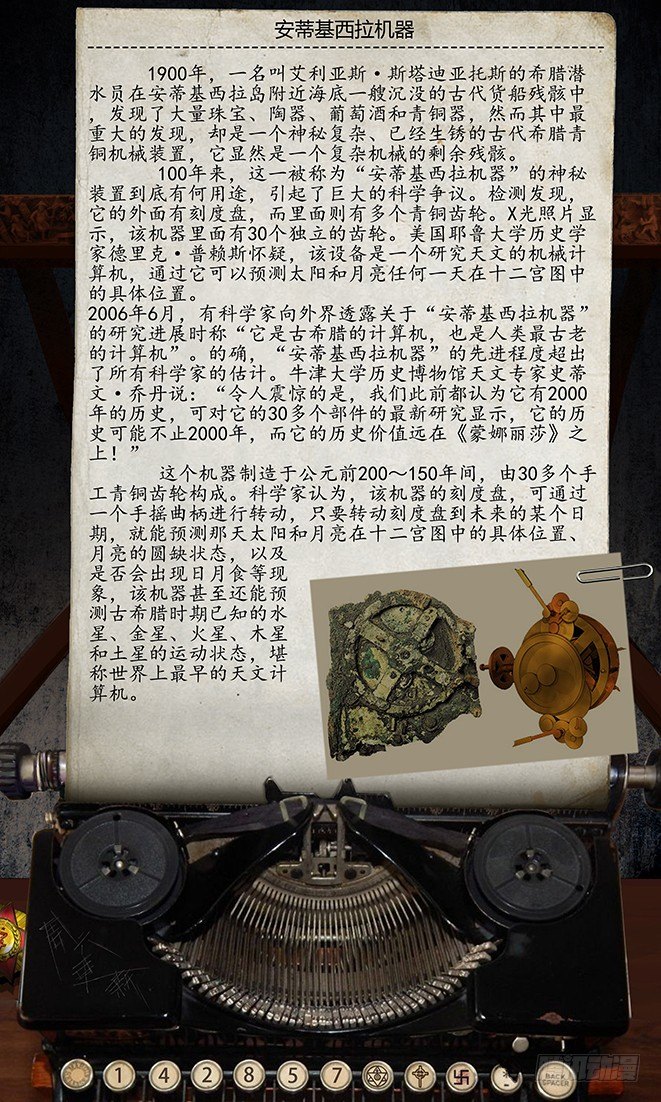 安蒂基西拉机器
1900年，一名叫艾利亚斯·斯塔迪亚托斯的希腊潜
水员在安蒂基西拉岛附近海底一艘沉没的古代货船残骸中
，发现了大量珠宝、陶器、葡萄酒和青铜器，然而其中最
重大的发现，却是一个神秘复杂、已经生锈的古代希腊青
铜机械装置，它显然是一个复杂机械的剩余残骸。
100年来，这一被称为“安蒂基西拉机器”的神秘
装置到底有何用途，引起了巨大的科学争议。检测发现，
它的外面有刻度盘，而里面则有多个青铜齿轮。X光照片显
示，该机器里面有30个独立的齿轮。美国耶鲁大学历史学
家德里克·普赖斯怀疑，该设备是一个研究天文的机械计
算机，通过它可以预测太阳和月亮任何一天在十二宫图中
的具体位置。
2006年6月，有科学家向外界透露关于“安蒂基西拉机器”
的研究进展时称“它是古希腊的计算机，也是人类最古老
的计算机”。的确，“安蒂基西拉机器”的先进程度超出
了所有科学家的估计。牛津大学历史博物馆天文专家史蒂
文·乔丹说：“令人震惊的是，我们此前都认为它有2000
年的历史，可对它的30多个部件的最新研究显示，它的历
史可能不止2000年，而它的历史价值远在《蒙娜丽莎》之
上！”
这个机器制造于公元前200～150年间，由30多个手
工青铜齿轮构成。科学家认为，该机器的刻度盘，可通过
一个手摇曲柄进行转动，只要转动刻度盘到未来的某个日
期，就能预测那天太阳和月亮在十二宫图中的具体位置、
月亮的圆缺状态，以及
是否会出现日月食等现
象，该机器甚至还能预
测古希腊时期已知的水
星、金星、火星、木星
和土星的运动状态，堪
称世界上最早的天文计
算机。
1 4 2 8 5 7
BACK SPACER